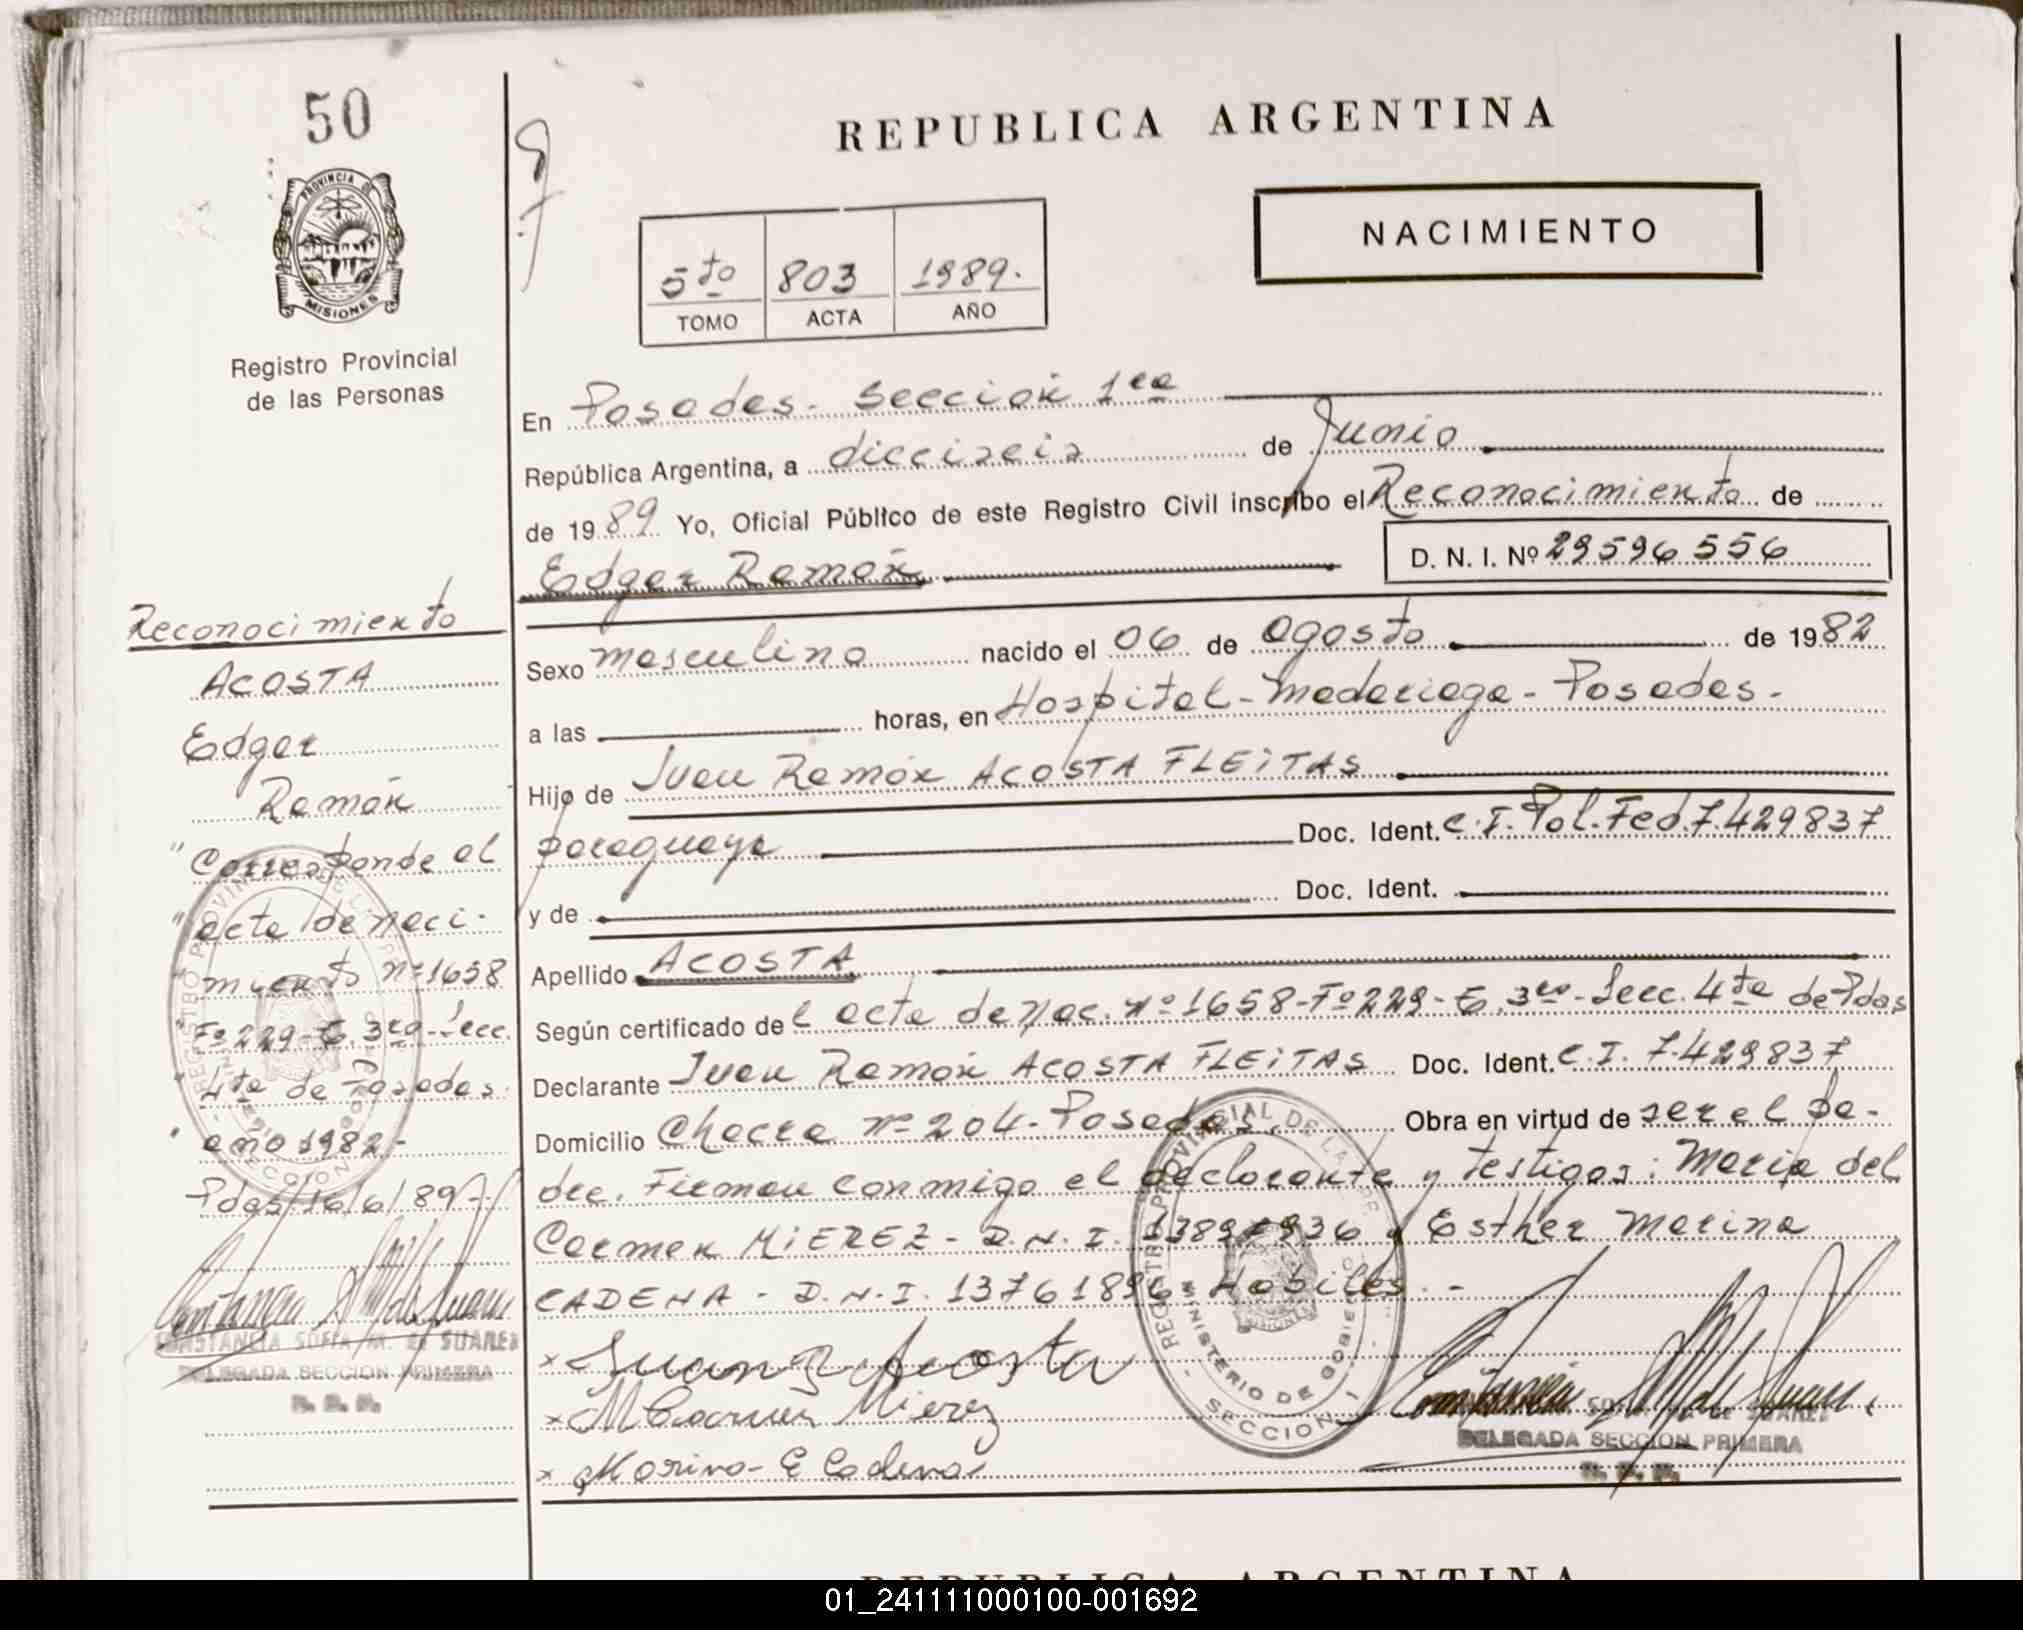 50
PROVINCIA DE
MISIONES
Registro Provincial
de las Personas
REPUBLICA ARGENTINA
NACIMIENTO
5to 803 1989.
TOMO ACTA AÑO
En Posadas. Sección 1ra
República Argentina, a dieciseis de Junio
de 1989 Yo, Oficial Público de este Registro Civil inscribo el Reconocimiento de
Edgar Ramón D. N. I. Nº 29596556
Sexo masculino nacido el 06 de agosto de 1982
a las horas, en Hospital-Madariaga-Posadas-
Hijo de Juan Ramón ACOSTA FLEITAS
paraguaya Doc. Ident. C.I. Pol. Fed. 7.429837
y de Doc. Ident.
Apellido ACOSTA
Según certificado del acta de Nac. nº 1658-Fº229-T. 3ro-Secc. 4ta de Pdas
Declarante Juan Ramón ACOSTA FLEITAS Doc. Ident. C.I. 7.429837
Domicilio Chacra nº 204-Posadas. Obra en virtud de ser el pa-
dre. Firman conmigo el declarante y testigos: María del
Carmen MIEREZ - D.N.I. y Esther Marina
CADENA - D.N.I. 13761896 Habiles.-
x Juan R Acosta
x M Carmen Mierez
x Marina E Cadena
SOFIA M. de SUAREZ
DELEGADA SECCION PRIMERA
R. P. P.
REGISTRO PROVINCIAL DE LAS PER
MINISTERIO DE GOBIERNO
SECCION 1
MISIONES
Reconocimiento
ACOSTA
Edgar
Ramón
"Corresponde al
"acta de naci-
miento nº 1658
"Fº 229-T. 3ro-Secc.
"4ta de Posadas.
"año 1982.-
Pdas/16/6/89-
CONSTANCIA SOFIA M. de SUAREZ
DELEGADA SECCION PRIMERA
R. P. P.
REPUBLICA ARGENTINA
01_241111000100-001692